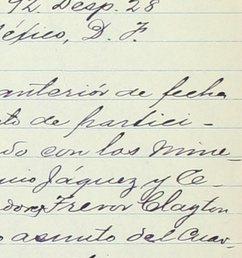 92. Desp. 28
México, D. F.
anterior de fecha
to de partici-
do con los Mine-
nio Jáquez y C-
dores Trevor Clayton
o asunto del Cuar-